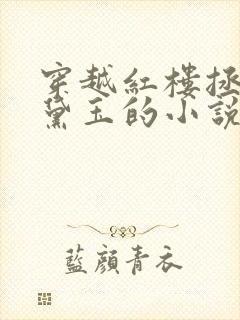 穿越紅樓拯
黛玉的小說
藍顏青衣